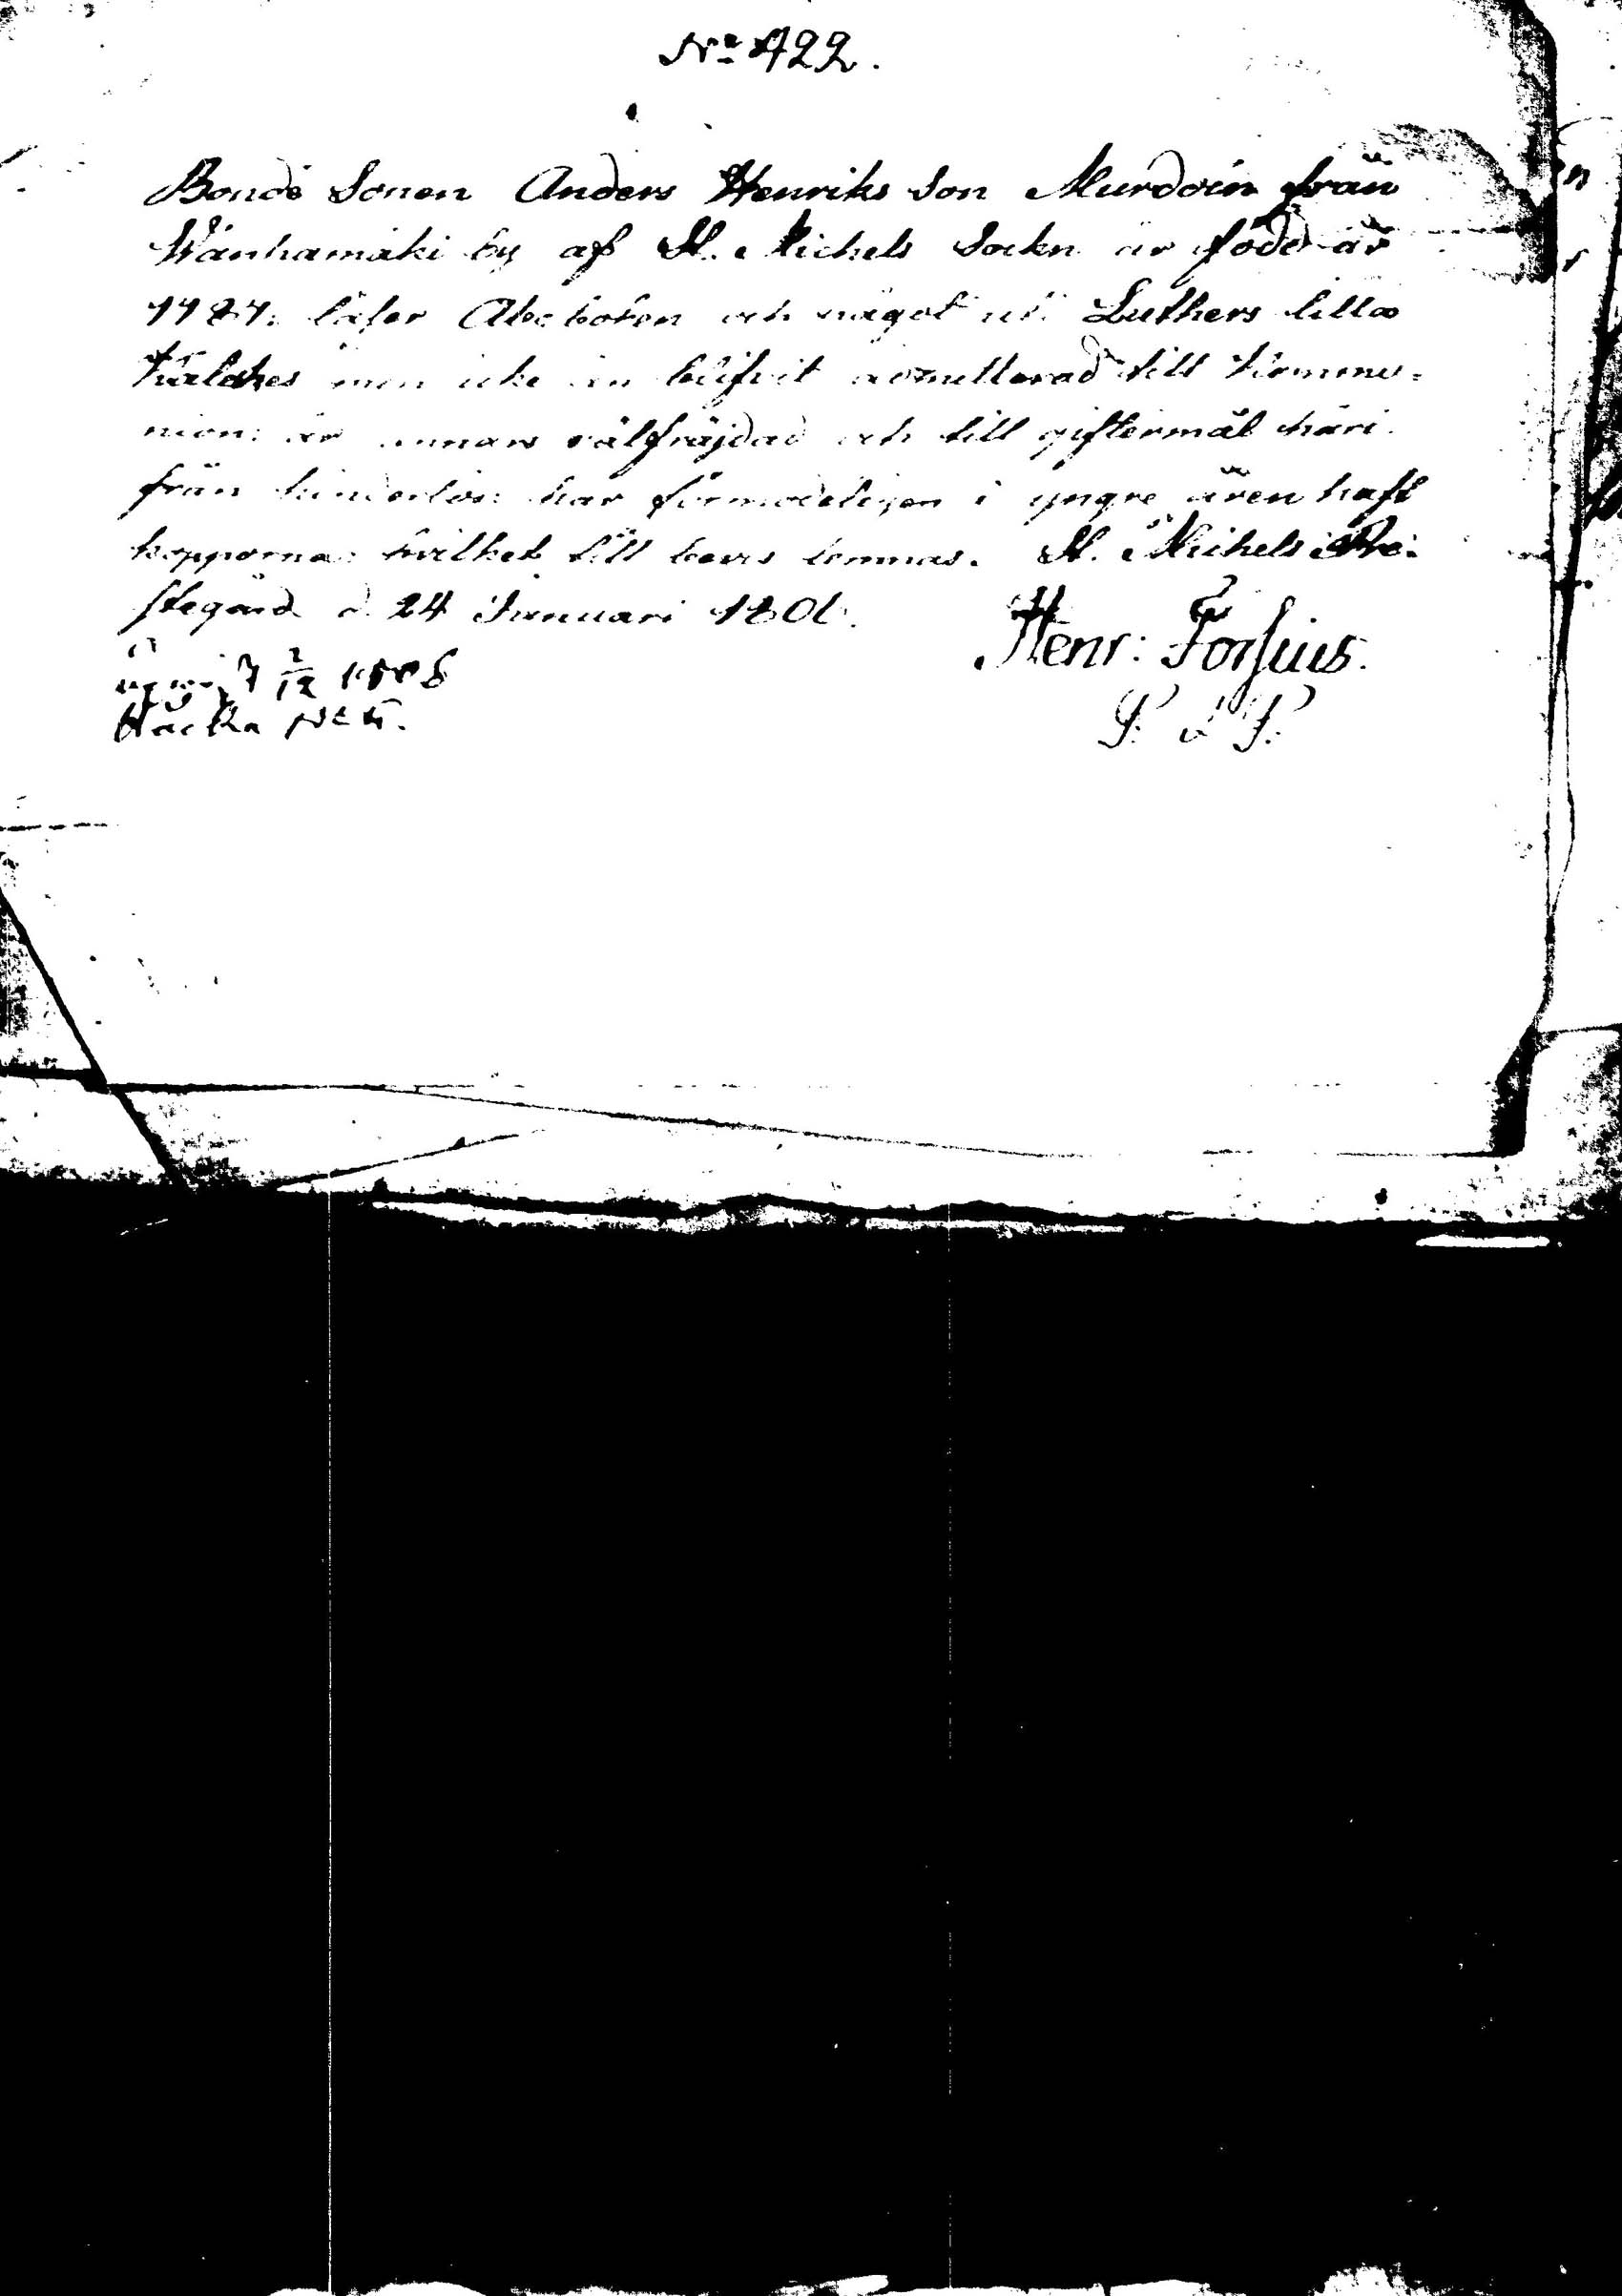 No 422.
Bonde Sonen Anders Henriks Son Murdoin från
Wanhamäki by af St. Michels Sockn är född år
1787: läser Abc boken och något uti Luthers lilla
men icke än blifvit admitterad till Kommu-
nion: är annars välfräjdad och till giftermål häri
från hinderlös: har förmodeligen i yngre åren haft
kopporna: hvilket till bevis lemnas. St. Michels Pre-
stegård d. 24 Januari 1806.
Henr: Forsius.
Backa No 5.